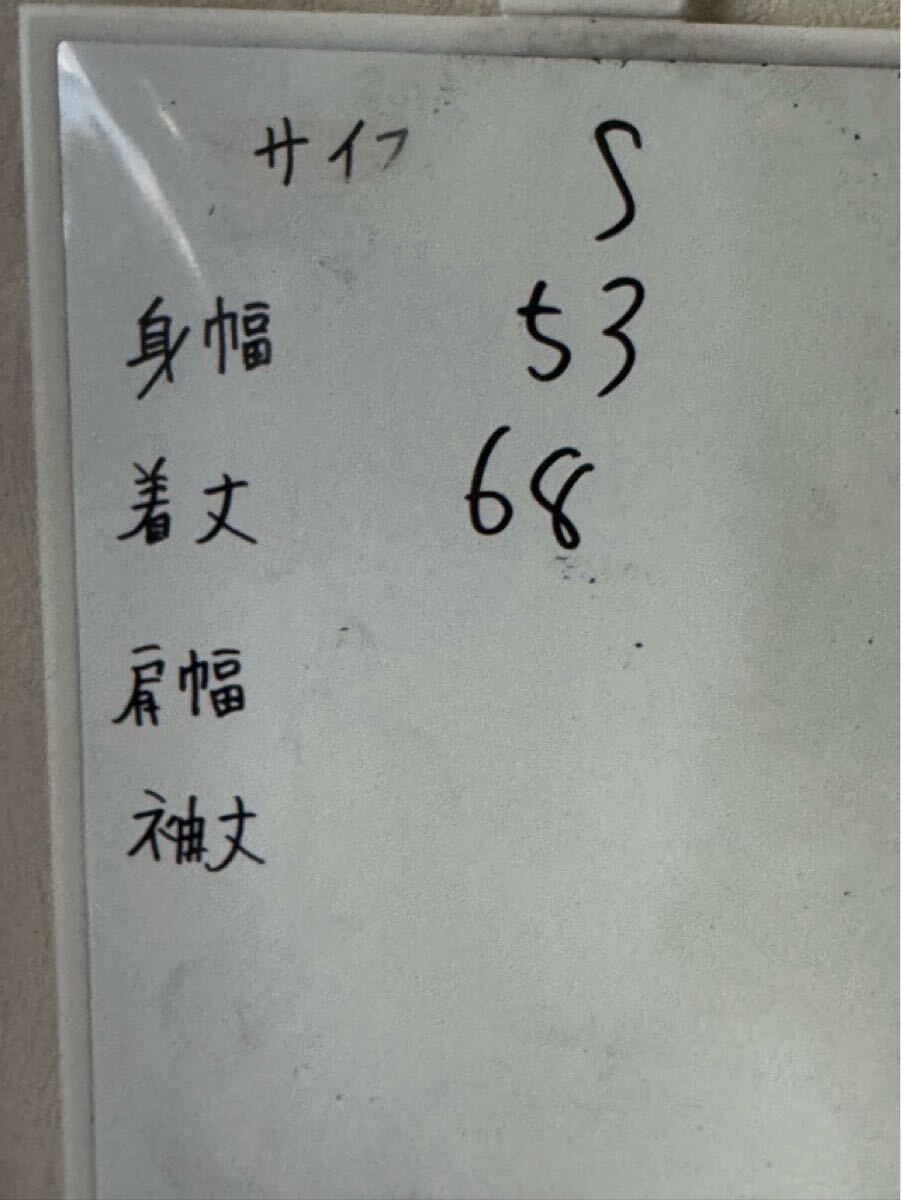 サイフ S
身幅 53
着丈 68
肩幅
袖丈